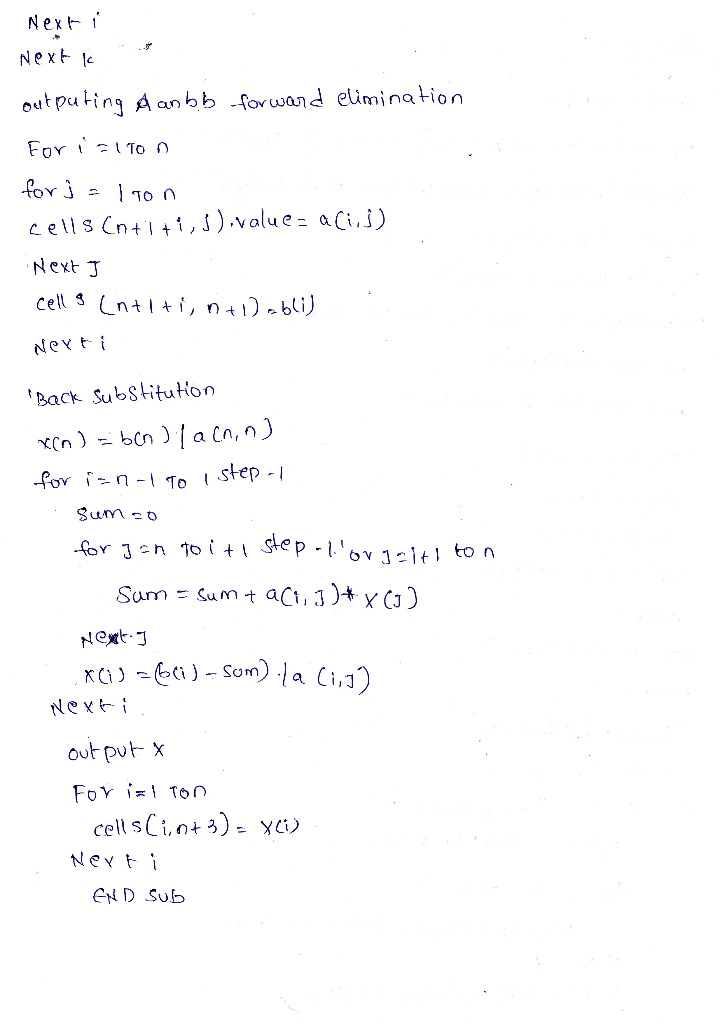 Next i
Next k
outputing A an b b forward elimination
For i = 1 To n
for j = 1 To n
cells (n+1+i, j).value = a(i,j)
Next J
cells (n+1+i, n+1) = b(i)
Next i
'Back Substitution
x(n) = b(n) / a(n,n)
for i=n-1 To 1 step -1
Sum = 0
for J=n To i+1 step -1 'or J=i+1 to n
Sum = sum + a(i,J)* x(J)
Next J
x(i) = (b(i) - sum) / a (i,J)
Next i
output x
For i=1 Ton
cells(i,n+3) = x(i)
Next i
END Sub